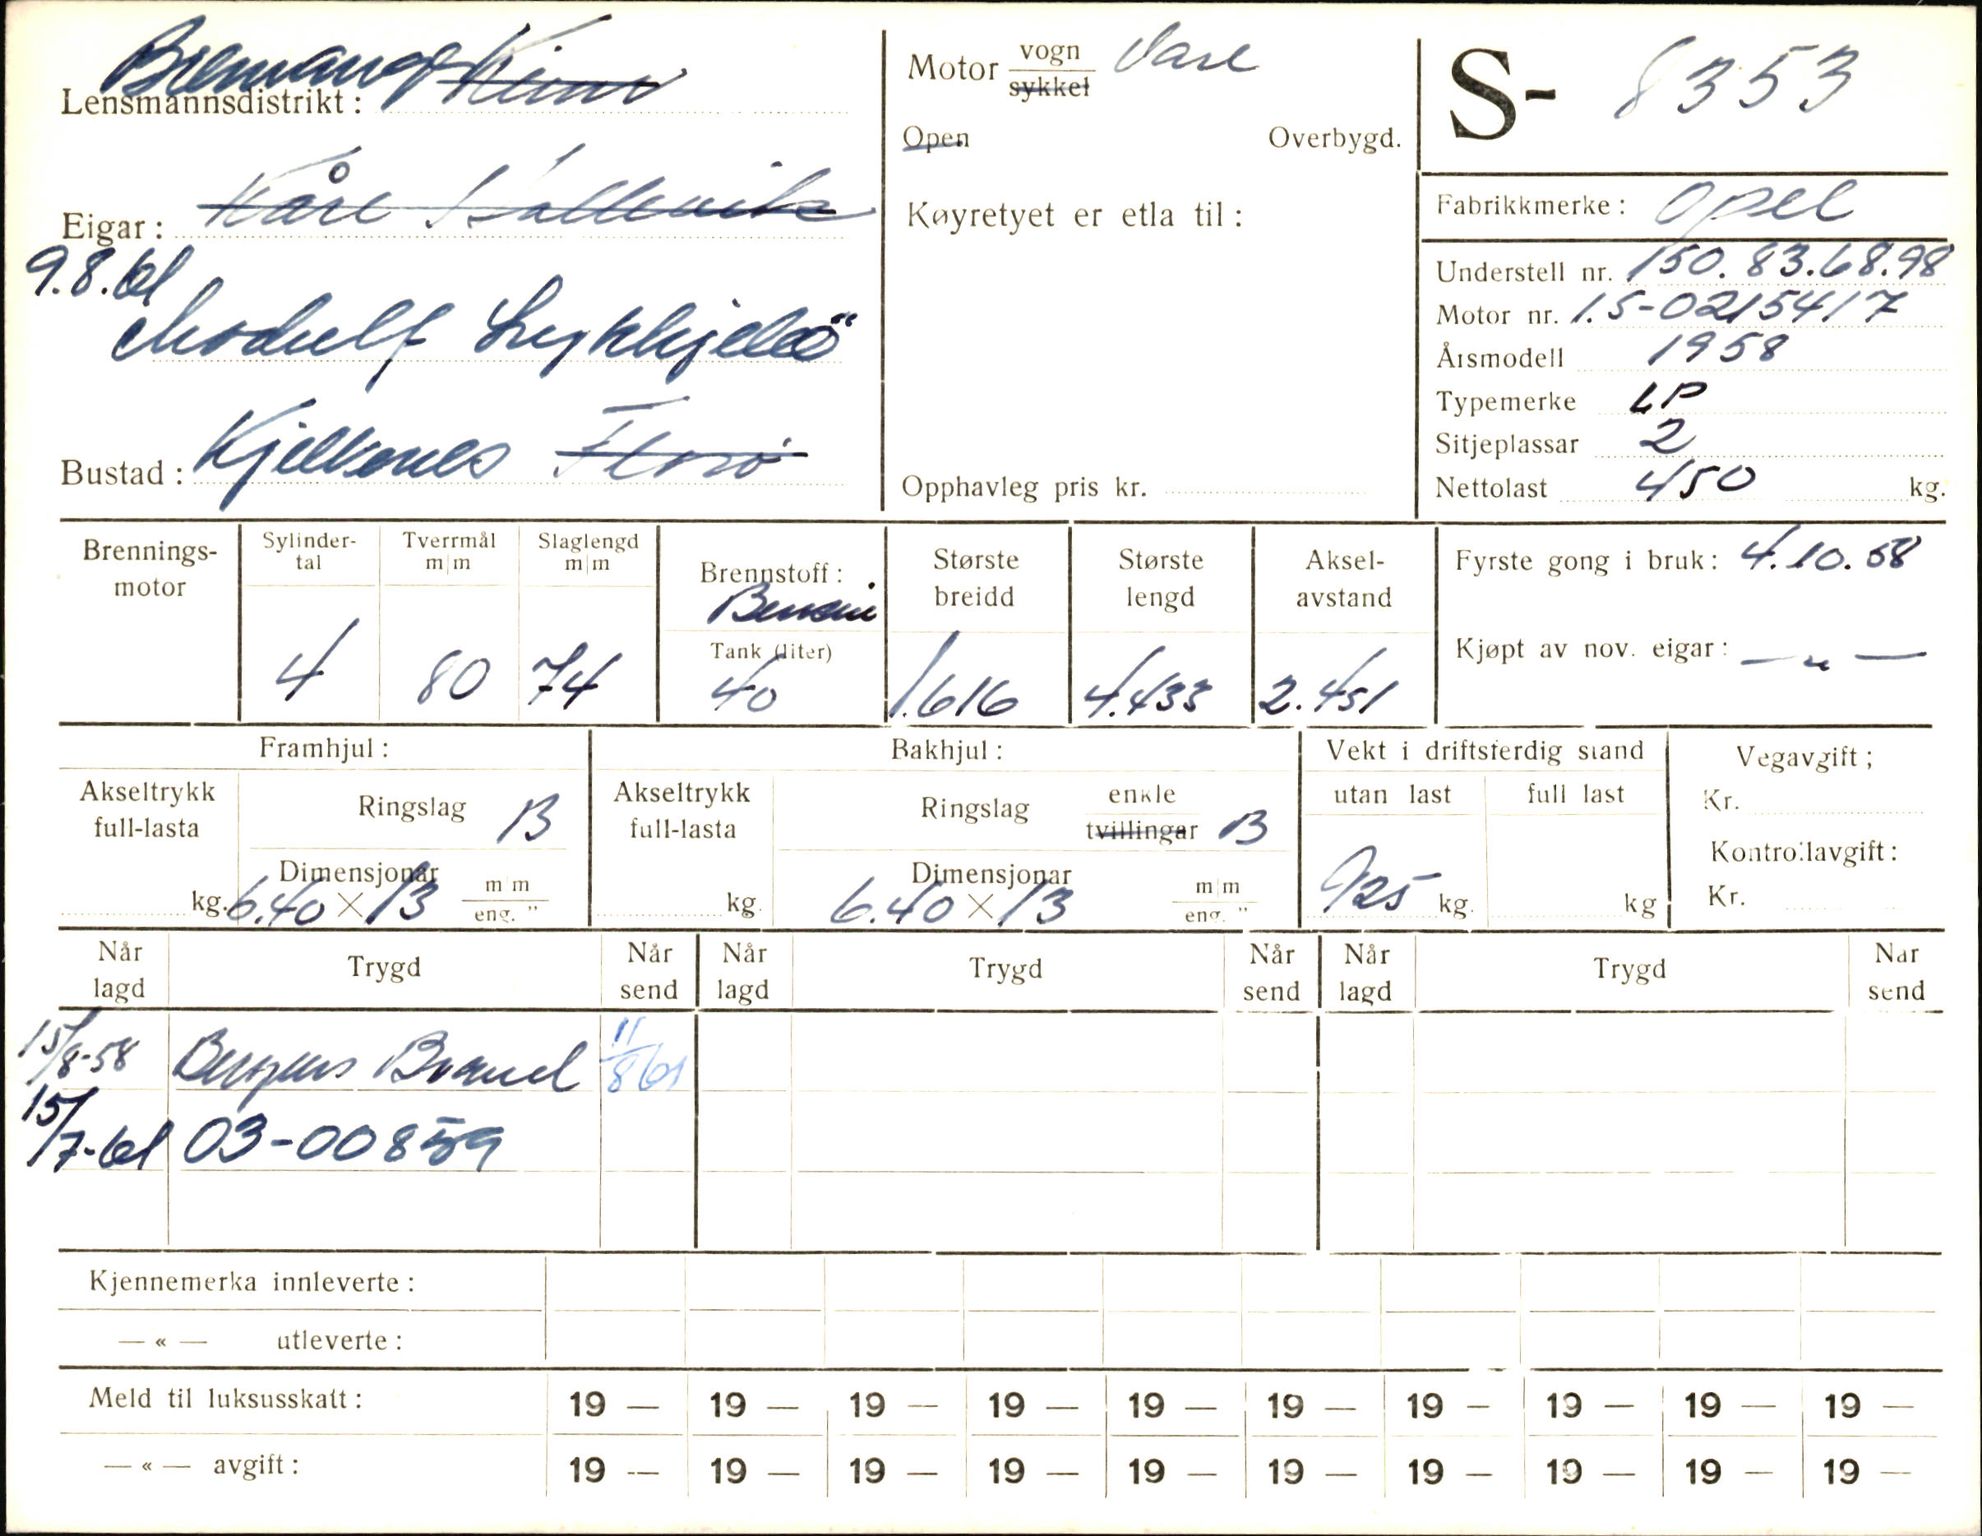 Lensmannsdistrikt: Bremanger Kinn
Eigar: Kåre
9.8.61
Bustad: Kjelkenes Florø
Motor vogn Vare
sykkel
Open Overbygd.
Køyretyet er etla til:
Opphavleg pris kr.
S- 8353
Fabrikkmerke: Opel
Understell nr. 150.83.68.98
Motor nr. 1.5-0215417
Årsmodell 1958
Typemerke LP
Sitjeplassar 2
Nettolast 450 kg.
Brennings-motor
Sylinder-tal 4
Tverrmål m|m 80
Slaglengd m|m 74
Brennstoff: Bensin
Tank (liter) 40
Største breidd 1.616
Største lengd 4.433
Aksel-avstand 2.451
Fyrste gong i bruk: 4.10.58
Kjøpt av nov. eigar: — „ —
Framhjul:
Akseltrykk full-lasta kg.
Ringslag B
Dimensjonar 6.40 × 13 m|m eng. "
Bakhjul:
Akseltrykk full-lasta kg.
Ringslag enkle tvillingar B
Dimensjonar 6.40 × 13 m|m eng. "
Vekt i driftsferdig stand
utan last 925 kg.
full last kg
Vegavgift;
Kr.
Kontrollavgift:
Kr.
Når lagd Trygd Når send Når lagd Trygd Når send Når lagd Trygd Når send
15/8-58 Bergens Brand 11/8 61
15/7-61 03-00859
Kjennemerka innleverte:
— « — utleverte:
Meld til luksusskatt: 19 — 19 — 19 — 19 — 19 — 19 — 19 — 19 — 19 — 19 —
— « — avgift: 19 — 19 — 19 — 19 — 19 — 19 — 19 — 19 — 19 — 19 —